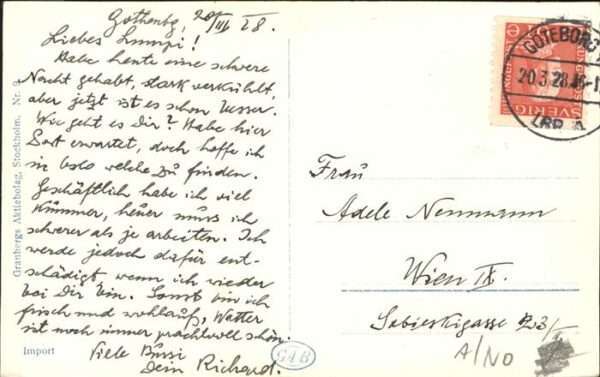 Gothenbg, 20/III 28.
Liebes Lumpi!
Habe heute eine schwere
Nacht gehabt, stark verkühlt,
aber jetzt ist es schon besser.
Wie geht es Dir? Habe hier
Post erwartet, doch hoffe ich
in Oslo welche zu finden.
Geschäftlich habe ich viel
Kümmer, heuer muss ich
schwerer als je arbeiten. Ich
werde jedoch dafür ent-
schädigt wenn ich wieder
bei Dir bin. Sonst bin ich
frisch und wohlauf, Wetter
ist noch immer prachtvoll schön.
Viele Bussi
Dein Richard.
Granbergs Aktiebolag, Stockholm. Nr. 9
Import
G4B
GÖTEBORG 1
20.3.28
LBR A
SVERIGE
Frau
Adele Neumann
Wien IX.
Sobieskigasse
A/NO